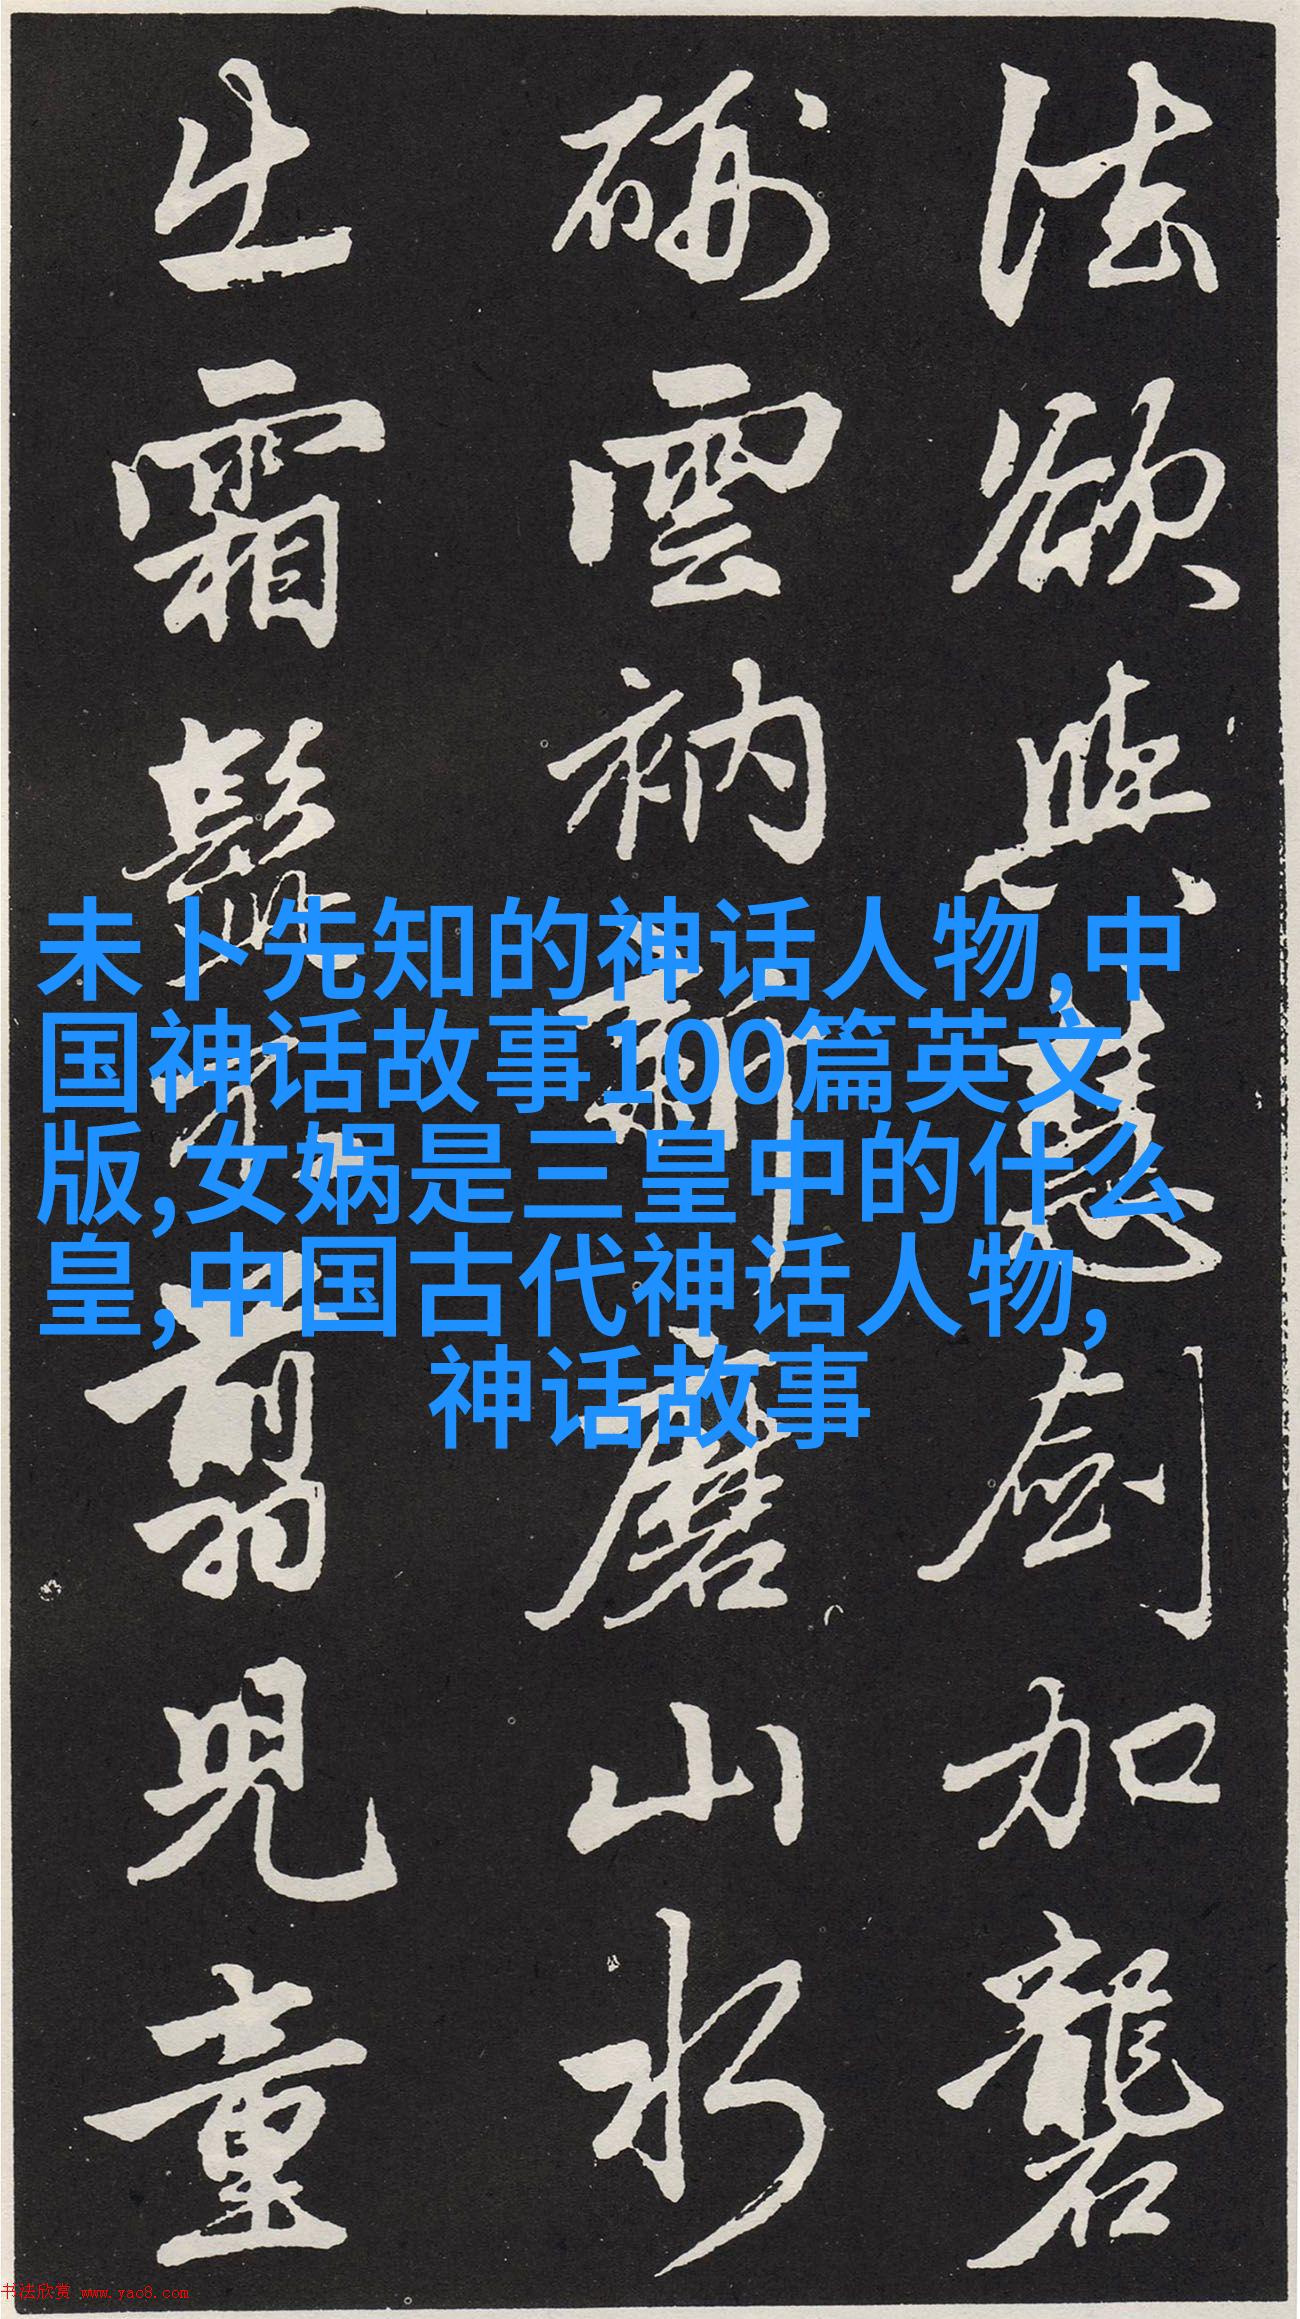 法欲與慧劍加礱
硎雲衲新磨山水
出霜髭不翦兒童
未卜先知的神话人物,中
国神话故事100篇英文
版,女娲是三皇中的什么
皇,中国古代神话人物,
神话故事
书法欣赏 www.yac8.com